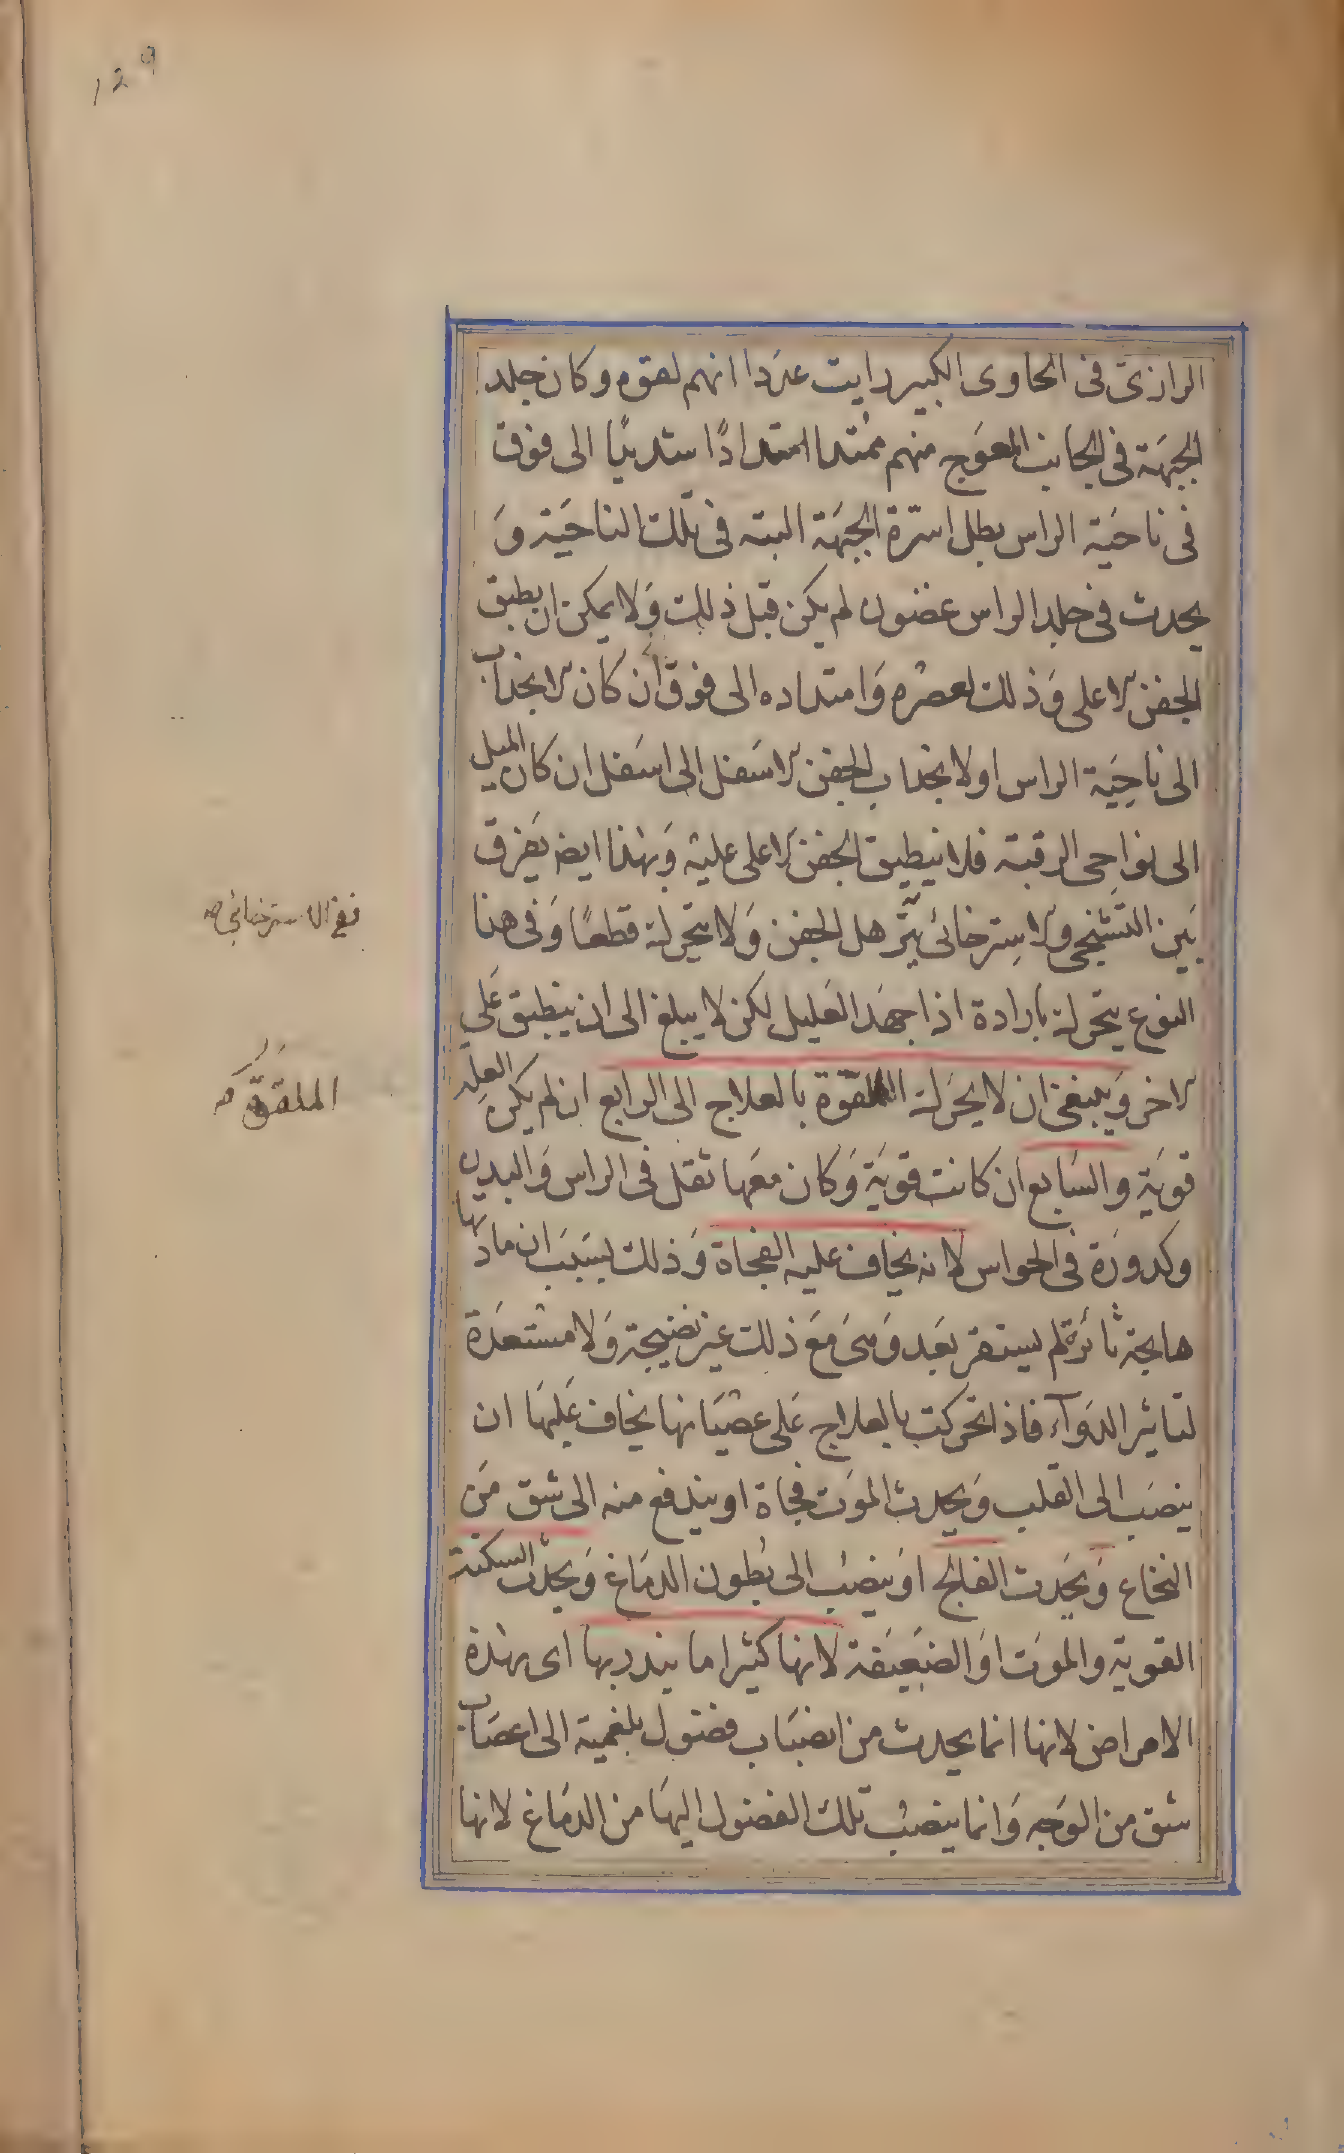 129
الرازى فى الحاوى الكبير رايت عددا انهم لقوه وكان جلد
الجبهة فى الجانب المعوج منهم ممتدا امتدادًا شديدًا الى فوق
فى ناحية الراس بطل اسرة الجبهة البتة فى تلك الناحية وَ
يحدث فى جلد الراس غضون لم يكن قبل ذلك وَلا يمكن ان يطبق
الجفن الاعلى وَذلك لعصره وَامتداده الى فوق ان كان الانجذاب
الى ناحِيَة الراس او لانجذاب الجفن الاسفل الى اسَفل ان كان الميل
الى نواحِى الرقبة فلا ينطبق الجفن الاعلى عليه وَبهذا ايضا يَفرق
بَين التشنجى والاسِترخائى يتَرهل الجفن وَلا يتحرك قطعًا وَفى هذا
ففى الاسترخائى صح
النوع يتحرك بارادة اذا جهَد العَليل لكن لا يبلغ الى ان ينطبق عَلى
الاخر وَينبغى ان لا يحرك الملقوّة بالعلاج الى الرابع ان لم يكن العلة
الملقوّ
قويَة والسَابع ان كانت قويَة وَكان معَها ثقل فى الراس وَالبدن
وكدورَة فى الحواس لانه يخاف عليه الفجاة وَذلك بسَبَب ان مادتها
هايجة ثائرة لم يستقر بعَد وَهىَ معَ ذلك غير نضيجة وَلا مستعدَة
لتاثير الدوَآء فاذا تحركت بالعلاج عَلى عصيَانها يخاف عَليهَا ان
ينصَب الى القلب وَيحدث الموَت فجاة او يندفع منه الى شق مَن
النخاع وَيحَدث الفالج اوَ ينصَب الى بُطون الدمَاغ وَيحدث السكتة
القوية والموَت اوَ الضَعيَفة لانها كثيرا ما ينذر بها اى بهذه
الامراض لانها انما يحدث من انصبَاب فضول بلغمية الى اعصَاب
شق من الوَجه وَانما ينصَب تلك الفضول اليهَا من الدمَاغ لانها